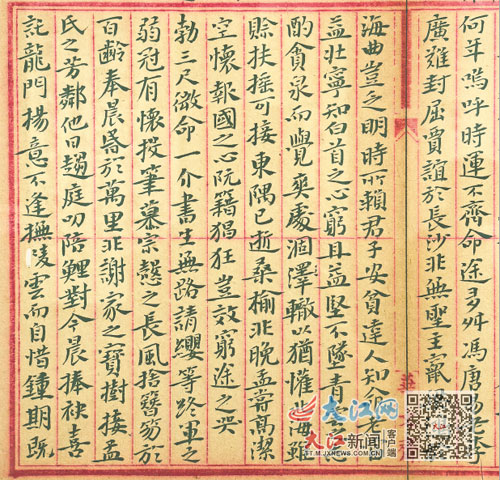 何年嗚呼時運不齊命途多舛馮唐易老李
廣難封屈賈誼於長沙非無聖主竄
海曲豈乏明時所賴君子安貧達人知命老當
益壯寧知白首之心窮且益堅不墜青雲之志
酌貪泉而覺爽處涸澤轍以猶懽北海雖
賒扶搖可接東隅已逝桑榆非晚孟嘗高潔
空懷報國之心阮籍猖狂豈效窮途之哭
勃三尺微命一介書生無路請纓等終軍之
弱冠有懷投筆慕宗愨之長風捨簪笏於
百齡奉晨昏於萬里非謝家之寶樹接孟
氏之芳鄰他日趨庭叨陪鯉對今晨捧袂喜
託龍門楊意不逢撫凌雲而自惜鍾期既
大江网
大江新闻 客户端
FT.M.JXNEWS.COM.CN